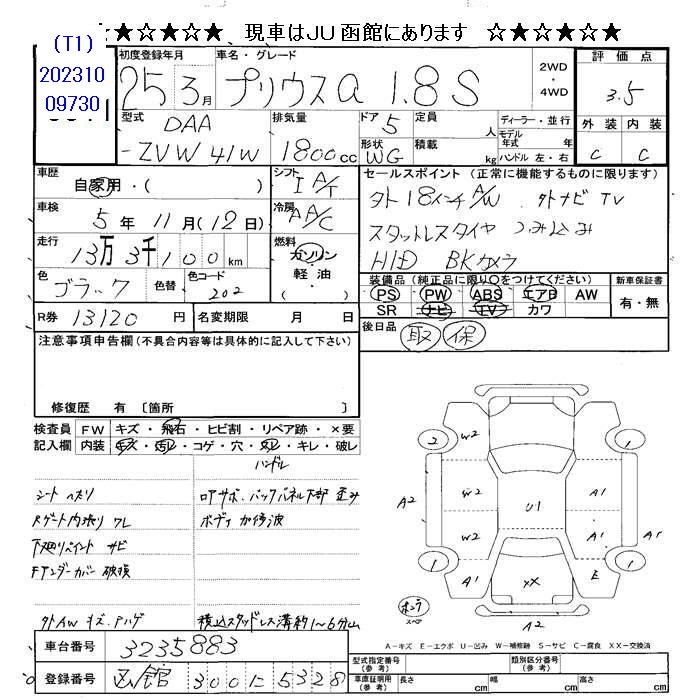 ★☆★☆★ 現車はJU函館にあります ☆★☆★☆★
(T1)
202310
09730
初度登録年月 車名・グレード 2WD ・ 4WD 評価点
25 3月 プリウスα 1.8 S 3.5
型式 排気量 ドア 定員 人 ディーラー・並行 外装 内装
DAA 5 モデル年式 年
-ZVW41W 1800cc 形状 WG 積載 kg ハンドル 左・右 C C
車歴 自家用・( ) シフト I A/T セールスポイント (正常に機能するものに限ります)
車検 5年 11月 (12日) 冷房 A/C 外18インチA/W 外ナビ TV
走行 13万3千100km 燃料 ガソリン 軽油 ( ) スタットレスタイヤ つみこみ
色 ブラック 色替 色コード 202 HID BKカメラ
装備品 (純正品に限り○をつけてください) 新車保証書
PS PW ABS エアB AW 有・無
SR ナビ TV カワ
R券 13120円 名変期限 月 日 後日品 取 保
注意事項申告欄 (不具合内容等は具体的に記入して下さい)
修復歴 有 [箇所 ]
検査員 FW キズ・飛石・ヒビ割・リペア跡・×要
記入欄 内装 キズ・汚レ・コゲ・穴・スレ・キレ・破レ
ハンドル
シート ヘタリ ロアサポ、バックパネル下部 歪み
Rゲート内張り ワレ ボディ 加修波
下廻りペイント サビ
Fアンダーカバー 破損
外AW キズ、ハゲ 積込スタッドレス溝約1〜6分山
2 W2 1
A2 W2 U1 A1
W2 A1 A1
1 A1 XX E 1
ホンネ スペア A2
A-キズ E-エクボ U-凹み W-補修跡 S-サビ C-腐食 XX-交換済
車台番号 3235883
登録番号 函館 300 に 5328
型式指定番号 (参考) 類別区分番号 (参考)
車庫証明用 (参考) 長さ cm 幅 cm 高さ cm